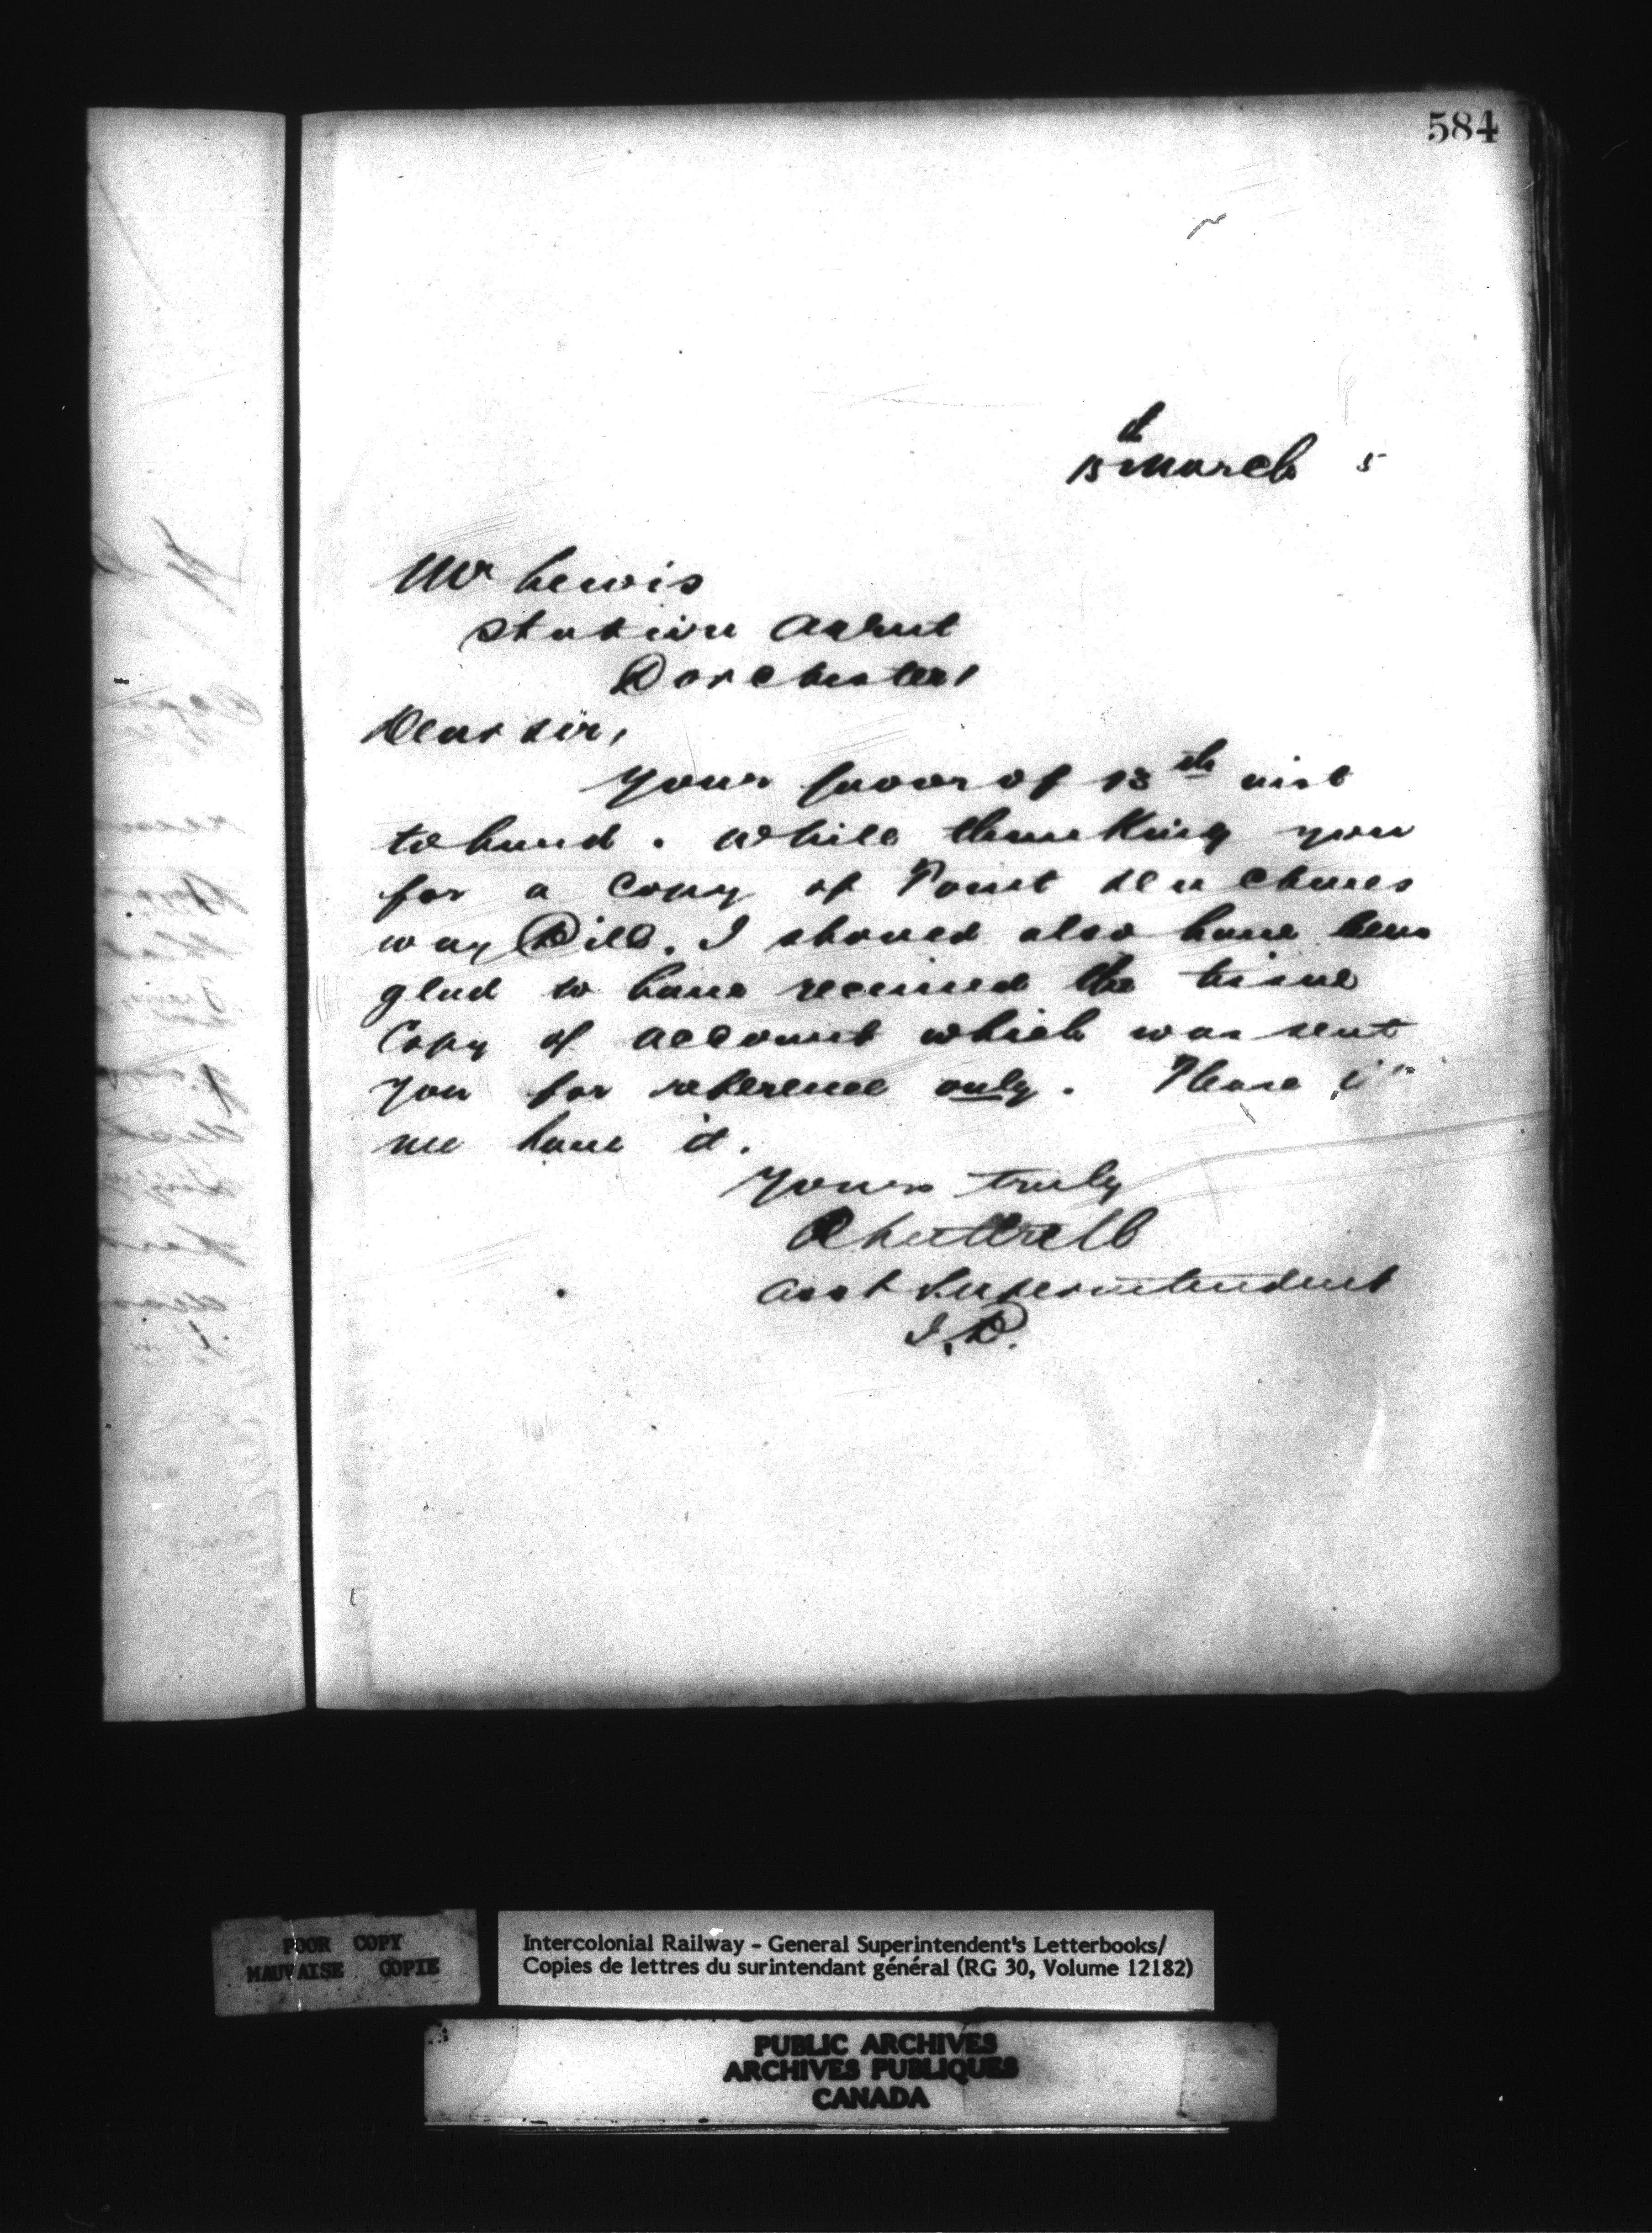 584
15th March 5
Mr Lewis
Station Agent
Dorchester
Dear Sir,
Your favor of 13th inst
to hand. While thanking you
for a copy of Point du Chenes
way Bill. I should also have been
glad to have received the tissue
Copy of account which was sent
you for reference only. Please
me have it.
Yours truly
Luttrell
Asst Superintendent
I.R.
POOR COPY
MAUVAISE COPIE
Intercolonial Railway - General Superintendent's Letterbooks/
Copies de lettres du surintendant général (RG 30, Volume 12182)
PUBLIC ARCHIVES
ARCHIVES PUBLIQUES
CANADA